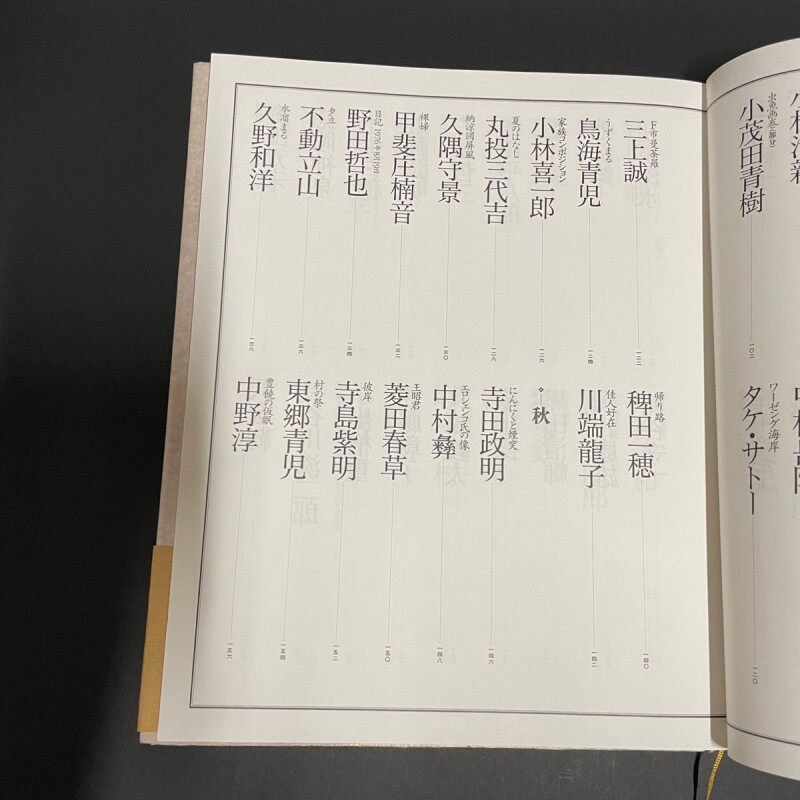 虫魚画巻(部分)
小茂田青樹
一〇二
ワーゼング海岸
タケ・サトー
一二〇
F市曼荼羅
三上誠
一二二
うずくまる
鳥海青児
一二四
家族コンポジション
小林喜一郎
一二六
夏のはなし
丸投三代吉
一二八
納涼図屏風
久隅守景
一三〇
裸婦
甲斐庄楠音
一三二
日記 1976年8月19日
野田哲也
一三四
夕立
不動立山
一三六
水溜まる
久野和洋
一三八
帰り路
稗田一穂
一四〇
佳人好在
川端龍子
一四二
秋
にんにくと煙突
寺田政明
一四六
エロシェンコ氏の像
中村彝
一四八
王昭君
菱田春草
一五〇
彼岸
寺島紫明
一五二
村の祭
東郷青児
一五四
豊饒の仮眠
中野淳
一五六